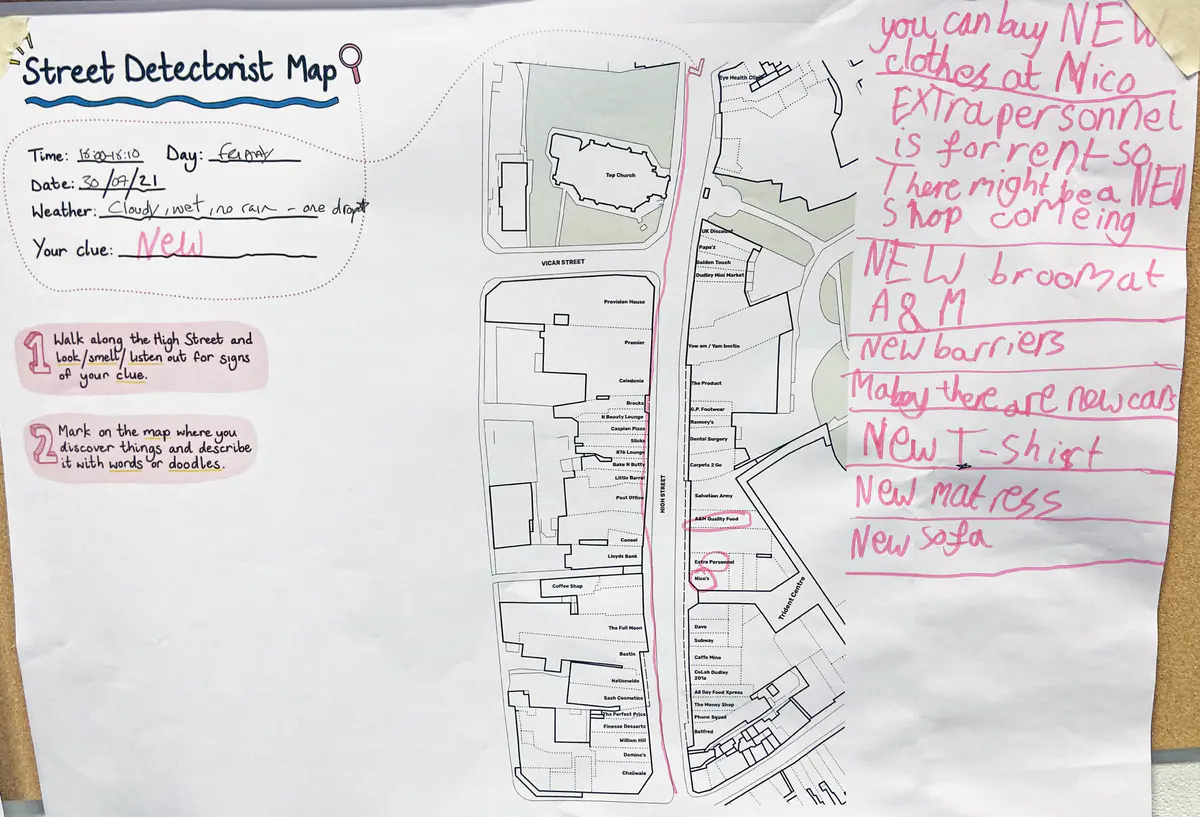 Street Detectorist Map
Time: 16:00-16:10 Day: Friday
Date: 30/07/21
Weather: Cloudy, wet, no rain - one drop
Your clue: New
1 Walk along the High Street and
look/smell/listen out for signs
of your clue.
2 Mark on the map where you
discover things and describe
it with words or doodles.
Eye Health Clinic
Top Church
VICAR STREET
HIGH STREET
Provision House
Premier
Caledonia
Brocks
N Beauty Lounge
Caspian Pizza
Slicks
876 Lounge
Bake N Butty
Little Barrel
Post Office
Consol
Lloyds Bank
Coffee Shop
The Full Moon
Bostin
Nationwide
Sash Cosmetics
The Perfect Price
Finesse Desserts
William Hill
Domino's
Chaiiwala
UK Discount
Papa's
Golden Touch
Dudley Mini Market
Yow am / Yam bostin
The Product
G.P. Footwear
Ramsey's
Dental Surgery
Carpets 2 Go
Salvation Army
A&M Quality Food
Extra Personnel
Nico's
Trident Centre
Dava
Subway
Caffe Mine
CoLab Dudley
201a
All Day Food Xpress
The Money Shop
Phone Squad
Betfred
you can buy NEW
clothes at Nico
EXTra personnel
is for rent so
There might be a NEW
Shop comeing
NEW broom at
A & M
New barriers
Maboy there are new cars
New T-Shirt
New matress
New sofa